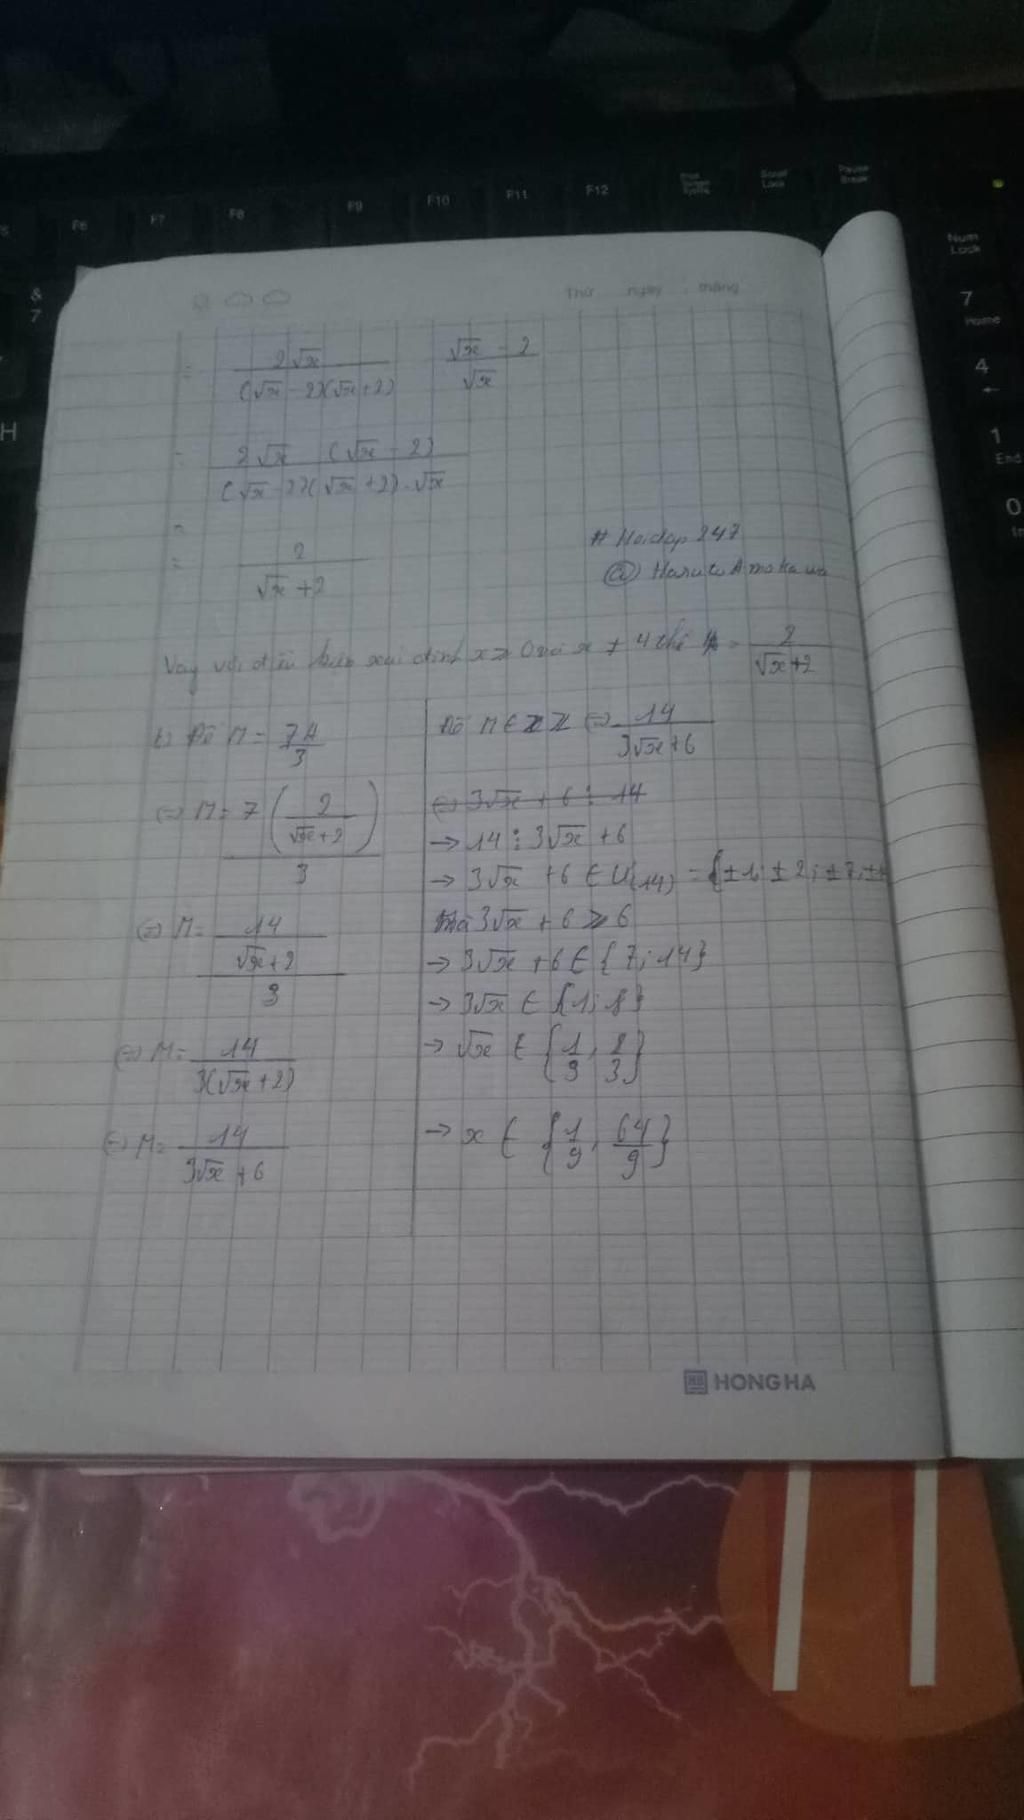 F6 F7 F8 F9 F10 F11 F12 Print Screen SysRq Scroll Lock Pause Break
Num Lock
& 7
7 Home
4 ←
H
1 End
0
Thứ ngày tháng
= 2√x / (√x - 2)(√x + 2) . √x - 2 / √x
= 2√x (√x - 2) / (√x - 2)(√x + 2) . √x
=
= 2 / √x + 2
# Hoidap 247
@ Haruko Amakawa
Vậy với điều kiện xác định x > 0 và x ≠ 4 thì A = 2 / √x + 2
b) Để M = 7A / 3
(=) M = 7 (2 / √x + 2) / 3
(=) M = 14 / √x + 2 / 3
(=) M = 14 / 3(√x + 2)
(=) M = 14 / 3√x + 6
Để M ∈ Z (=) 14 / 3√x + 6
(=) 3√x + 6 ⋮ 14
→ 14 ⋮ 3√x + 6
→ 3√x + 6 ∈ Ư(14) = {±1; ±2; ±7; ±1
Mà 3√x + 6 ≥ 6
→ 3√x + 6 ∈ {7; 14}
→ 3√x ∈ {1; 8}
→ √x ∈ {1/3; 8/3}
→ x ∈ {1/9; 64/9}
HONG HA